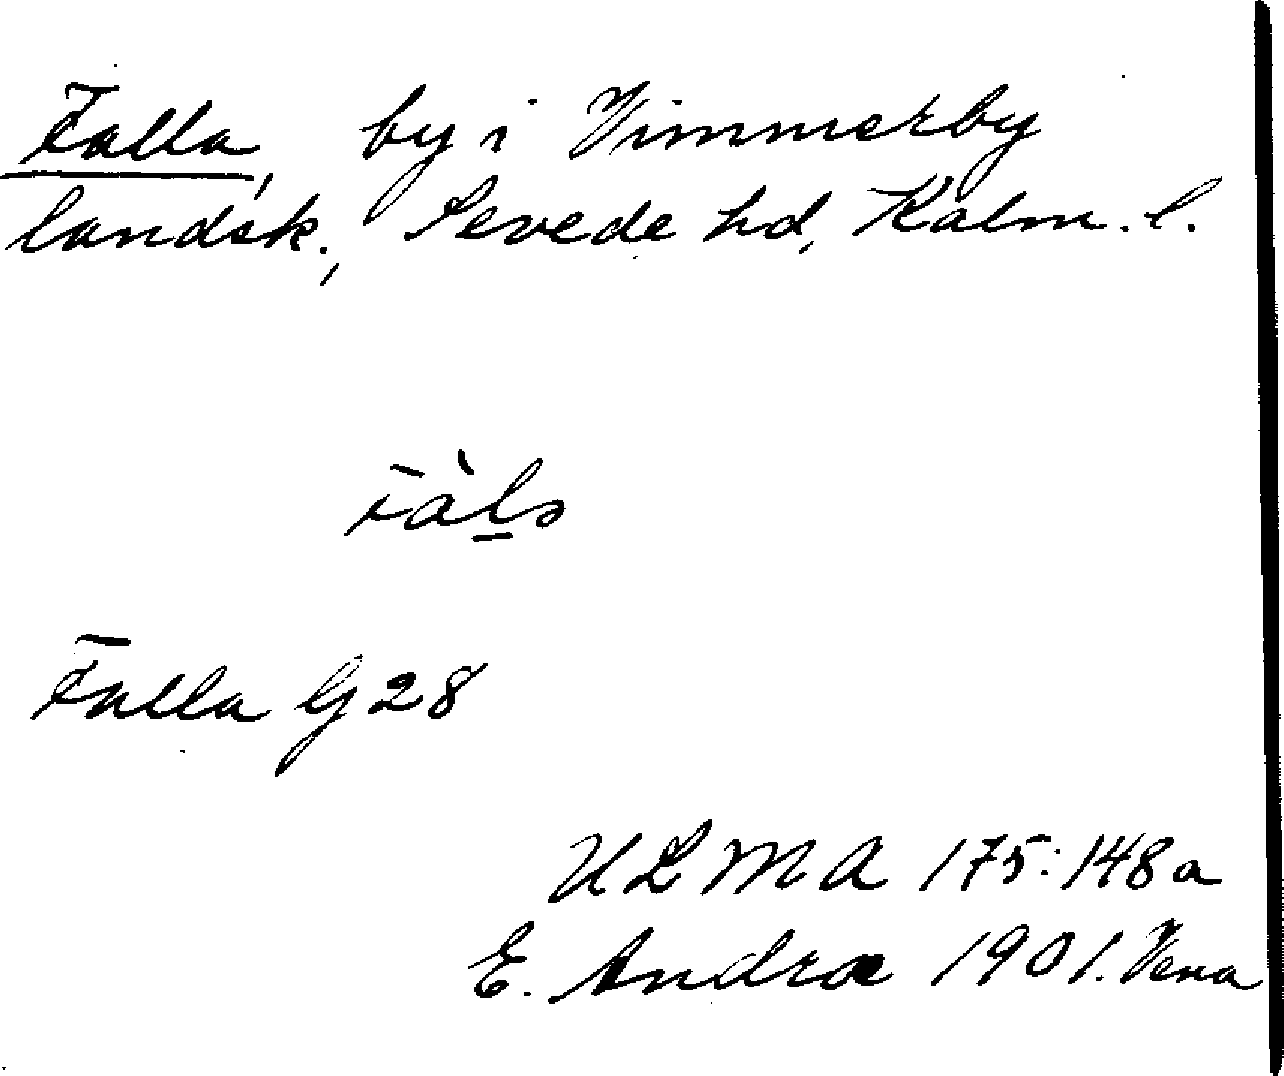 Falla, by i Vimmerby
landsk., Sevede hd, Kalm. l.
fàls
Falla G 28
ULMA 175:148a
E. Andræ 1901. Vena